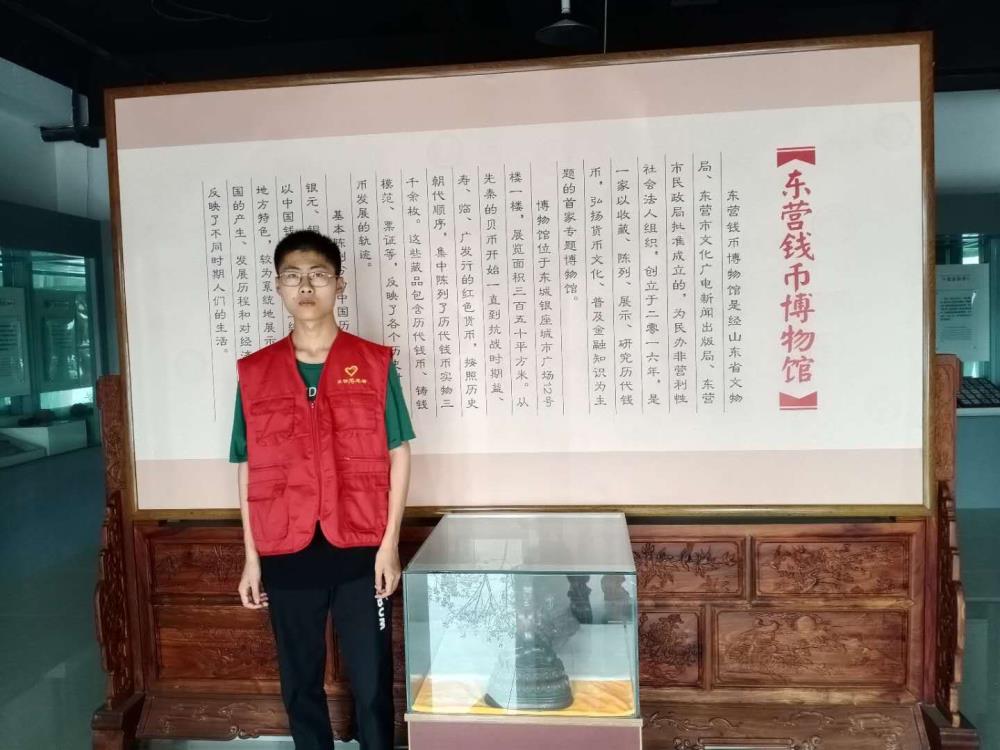 东营钱币博物馆
东营钱币博物馆是经山东省文物
局、东营市文化广电新闻出版局、东营
市民政局批准成立的，为民办非营利性
社会法人组织，创立于二零一六年，是
一家以收藏、陈列、展示、研究历代钱
币，弘扬货币文化、普及金融知识为主
题的首家专题博物馆。
博物馆位于东城银座城市广场12号
楼一楼，展览面积三百五十平方米。从
先秦的贝币开始一直到抗战时期益、
寿、临、广发行的红色货币，按照历史
朝代顺序，集中陈列了历代钱币实物三
千余枚。这些藏品包含历代钱币、铸钱
模范、票证等，反映了各个历史
币发展的轨迹。
基本陈列 中国历
银元、
以中国钱
地方特色，较为系统地展示
国的产生、发展历程和对经济
反映了不同时期人们的生活。